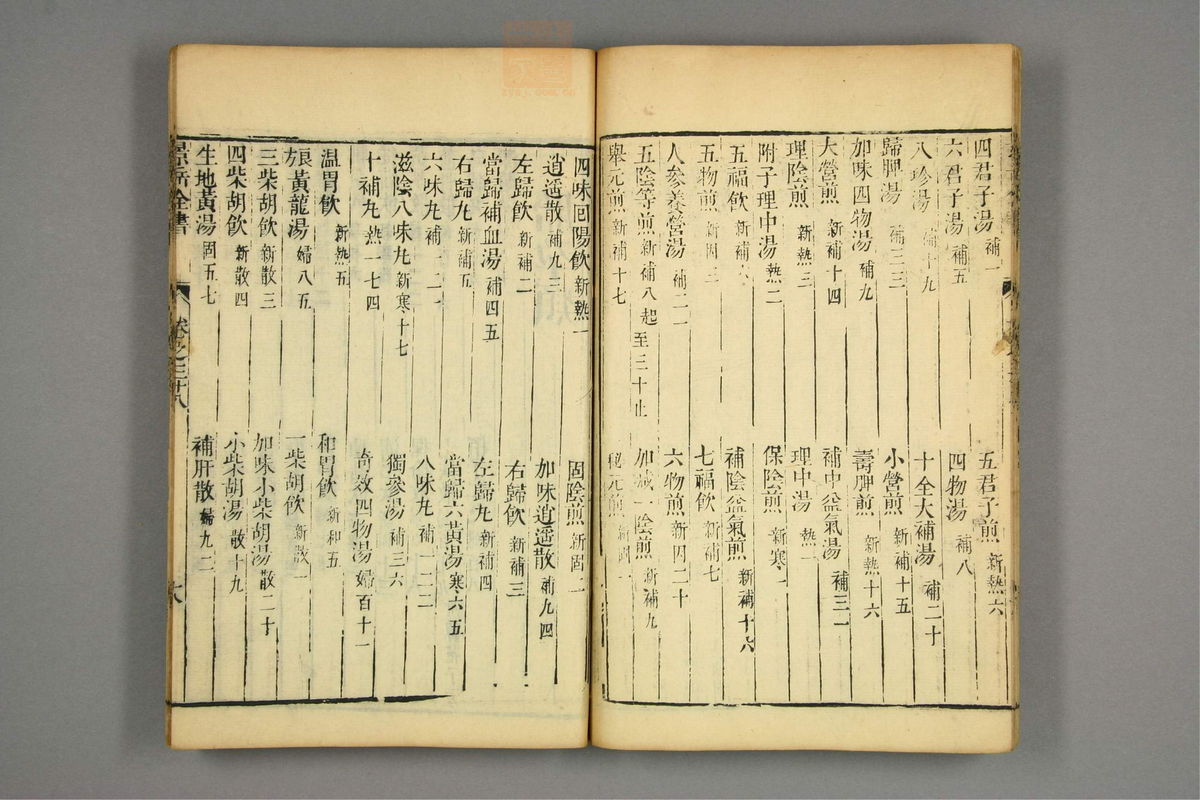 四君子湯 補一　五君子煎 新熱六
六君子湯 補五　四物湯 補八
八珍湯 補十九　十全大補湯 補二十
歸脾湯 補三三　小營煎 新補十五
加味四物湯 補九　壽脾煎 新熱十六
大營煎 新補十四　補中益氣湯 補三一
理陰煎 新熱三　理中湯 熱一
附子理中湯 熱二　保陰煎 新寒一
五福飲 新補六　補陰益氣煎 新補十六
五物煎 新因三　七福飲 新補七
人參養營湯 補二一　六物煎 新因二十
五陰等煎 新補八起至三十止　加減一陰煎 新補九
舉元煎 新補十七　秘元煎 新固一
四味回陽飲 新熱一　固陰煎 新固二
逍遙散 補九三　加味逍遙散 補九四
左歸飲 新補二　右歸飲 新補三
當歸補血湯 補四五　左歸丸 新補四
右歸丸 新補五　當歸六黃湯 寒六五
六味丸 補一二一　八味丸 補一二二
滋陰八味丸 新寒十七　獨參湯 補三六
十補丸 熱一七四　奇效四物湯 婦百十一
溫胃飲 新熱五　和胃飲 新和五
良方黃龍湯 婦八五　一柴胡飲 新散一
三柴胡飲 新散三　加味小柴胡湯 散二十
四柴胡飲 新散四　小柴胡湯 散十九
生地黃湯 固五七　補肝散 婦九二
景岳全書　卷之三十八